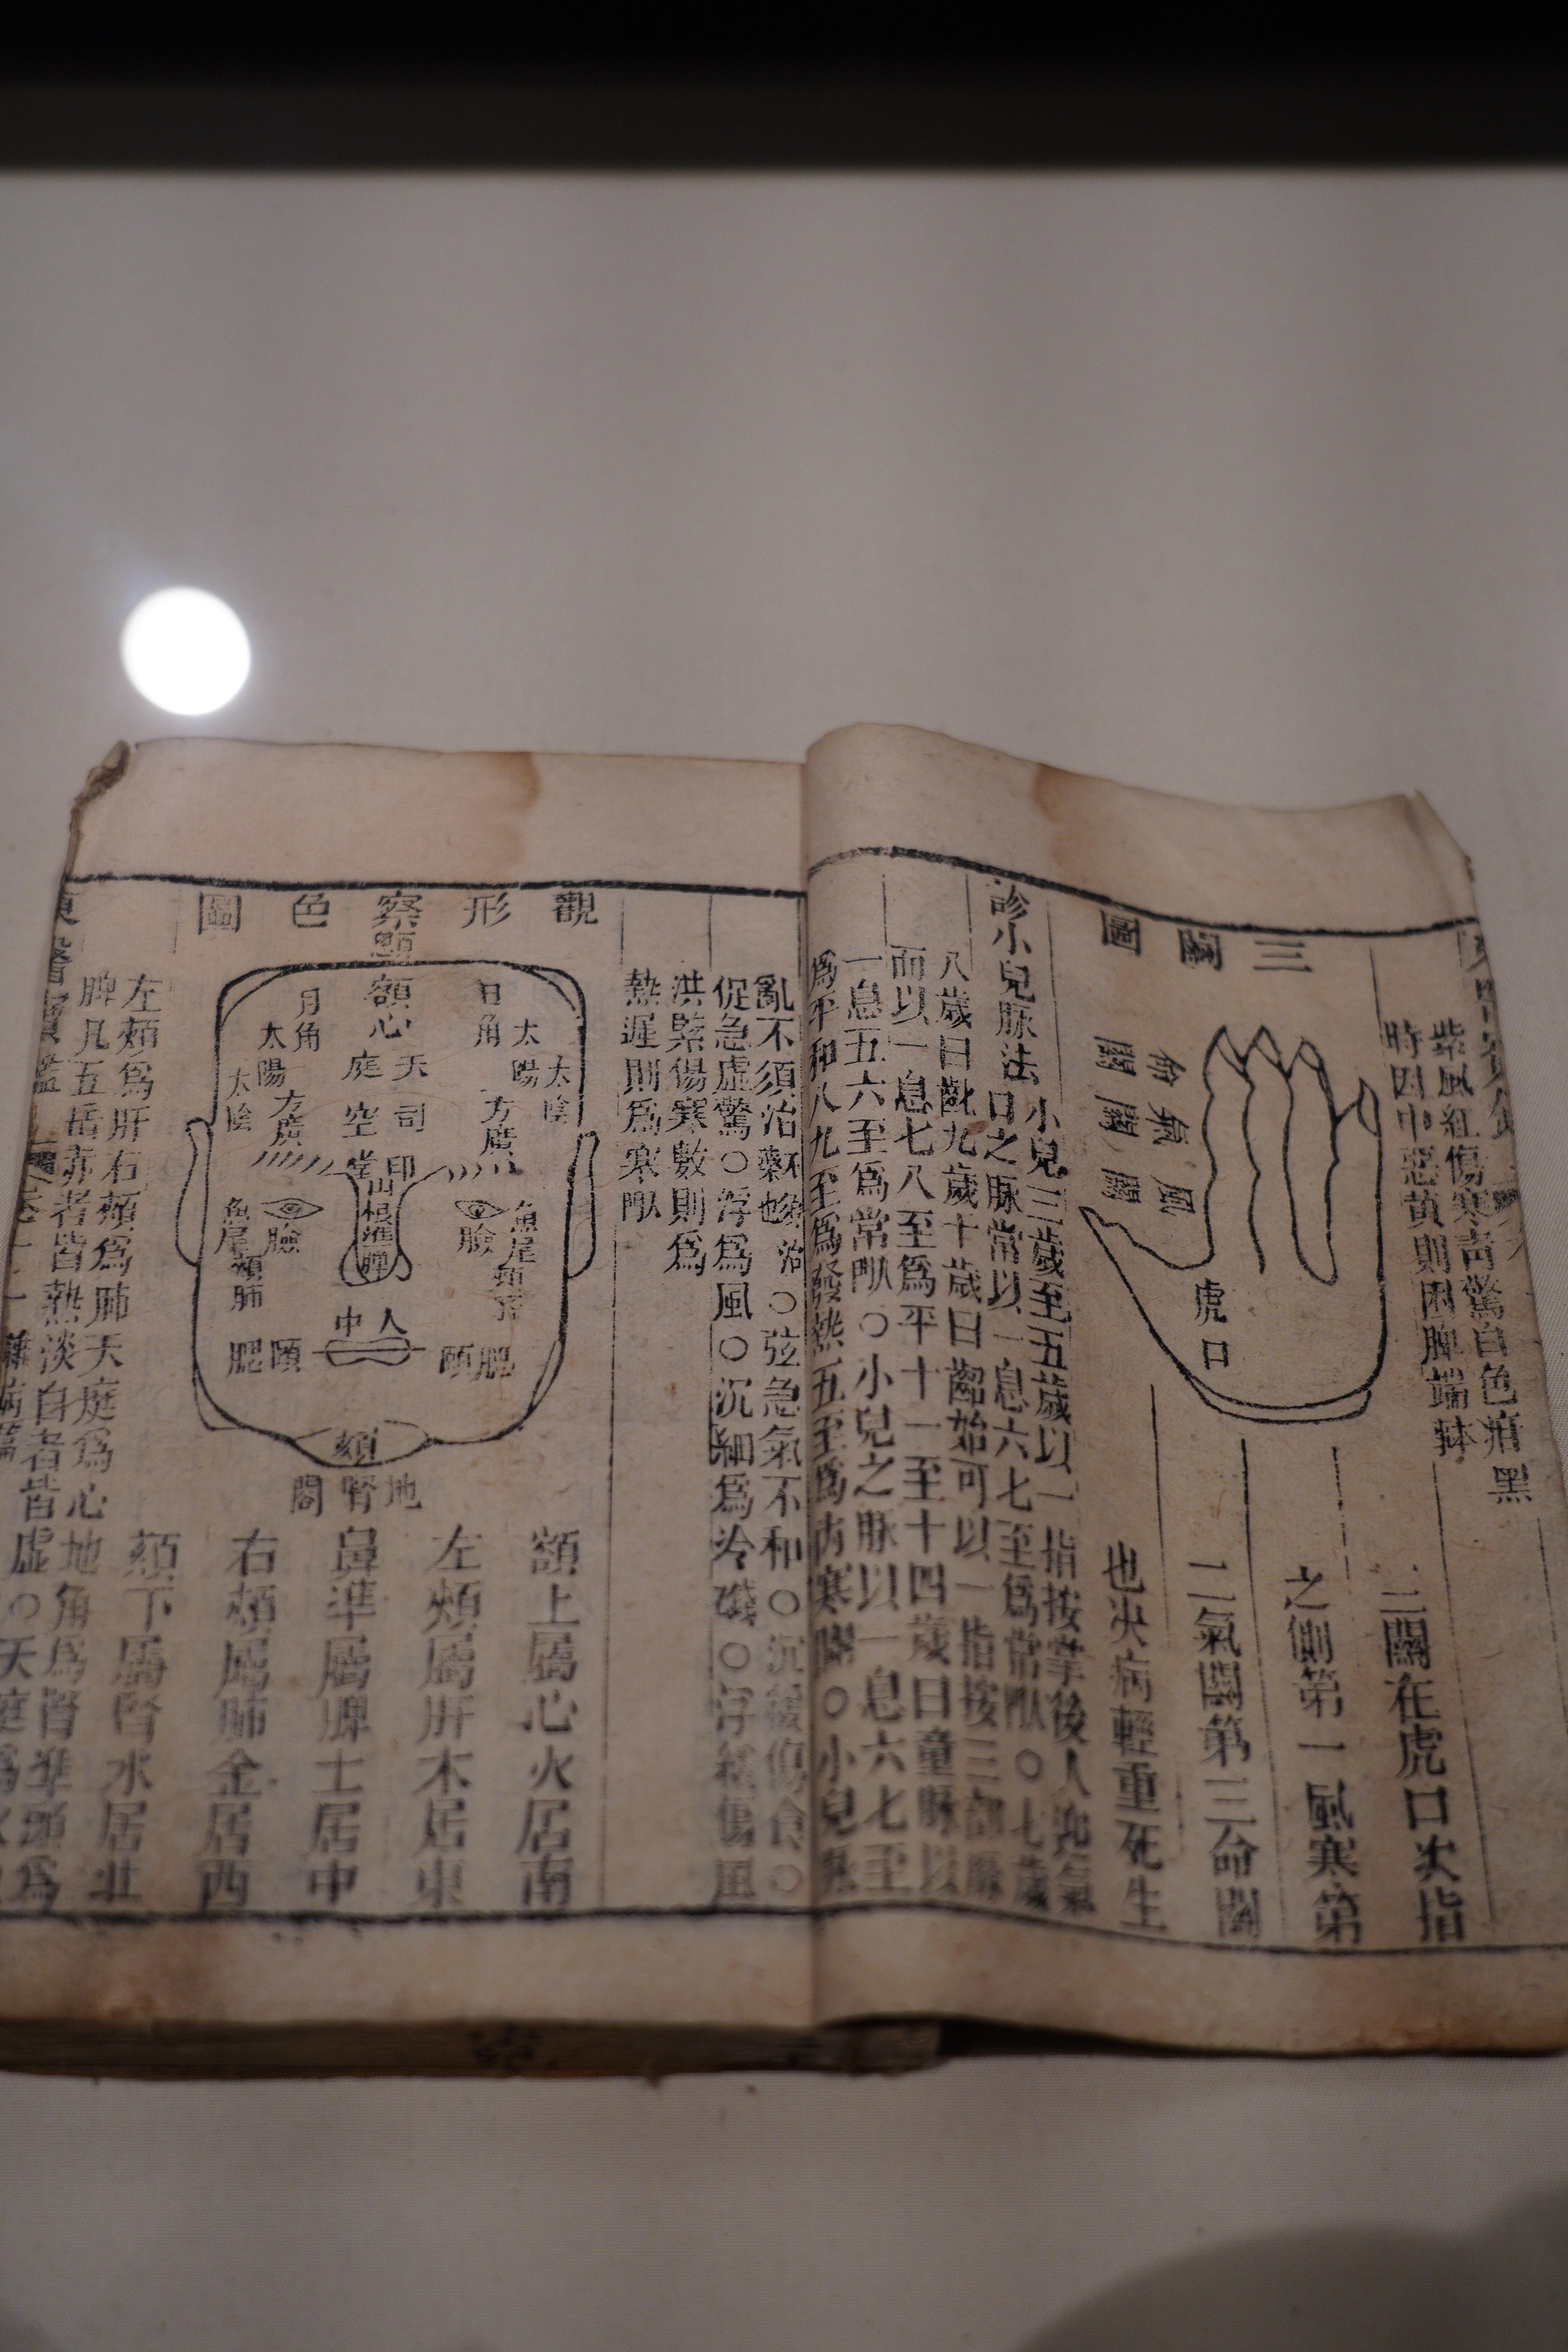 紫風紅傷寒青驚白色疳黑
時因中惡黄則困脾端
三關圖
命關
氣關
風關
虎口
三關在虎口次指
之側第一風寒第
二氣關第三命關
也次病輕重死生
診小兒脉法
小兒三歲至五歲以一指按掌後人迎氣
口之脉常以一息六七至爲常
七歲
八歲曰齓九歲十歲曰齠始可以一指按三部脉
而以一息七八至爲平十一至十四歲曰童脉以
一息五六至爲常○小兒之脉以一息六七至
爲平和八九至爲發熱五至爲内寒○小兒
亂不須治○弦急氣不和○沉緩傷食○
促急虛驚○浮爲風○沉細爲冷○浮傷風
洪緊傷寒數則爲
熱遲則爲寒
觀形察色圖
顖
額心
日角
月角
太陽
太陽
太陰
太陰
天庭
司空
方廣
方廣
印堂
山根準脾
魚尾
魚尾
臉
臉
頰肺
頰肝
人中
頤
頤
頦
地腎閣
額上屬心火居南
左頰屬肝木居東
鼻準屬脾土居中
右頰屬肺金居西
頦下屬腎水居北
左頰爲肝右頰爲肺天庭爲心地角爲腎準頭爲
脾凡五岳赤者皆熱淡白者皆虛○天庭爲